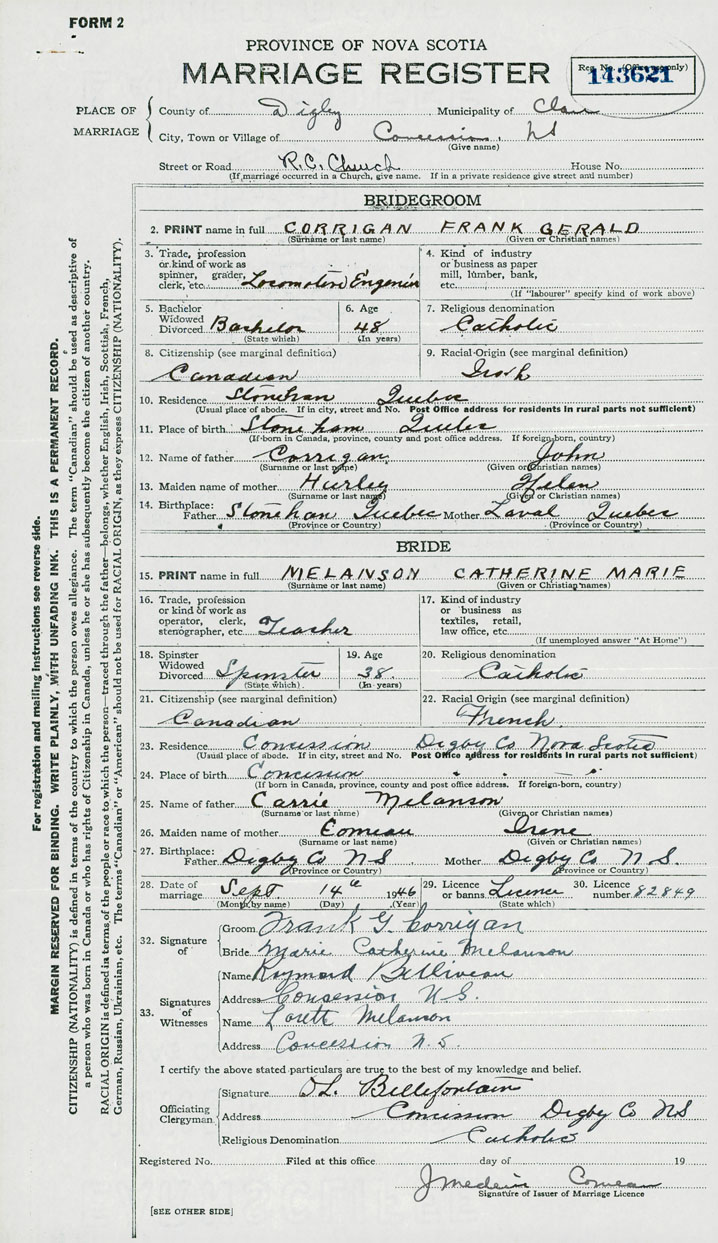 FORM 2
PROVINCE OF NOVA SCOTIA
MARRIAGE REGISTER
Reg. No. (Office use only)
143621
PLACE OF MARRIAGE
County of Digby Municipality of Clare
City, Town or Village of Concession, NS
(Give name)
Street or Road R.C. Church House No.
(If marriage occurred in a Church, give name. If in a private residence give street and number)
BRIDEGROOM
2. PRINT name in full CORRIGAN FRANK GERALD
(Surname or last name) (Given or Christian names)
3. Trade, profession or kind of work as spinner, grader, clerk, etc. Locomotive Engenier
4. Kind of industry or business as paper mill, lumber, bank, etc.
(If "labourer" specify kind of work above)
5. Bachelor Widowed Divorced Bachelor (State which)
6. Age 48 (In years)
7. Religious denomination Catholic
8. Citizenship (see marginal definition) Canadian
9. Racial-Origin (see marginal definition) Irish
10. Residence Stoneham Quebec
(Usual place of abode. If in city, street and No. Post Office address for residents in rural parts not sufficient)
11. Place of birth Stoneham Quebec
(If born in Canada, province, county and post office address. If foreign born, country)
12. Name of father Corrigan John
(Surname or last name) (Given or Christian names)
13. Maiden name of mother Hurley Helen
(Surname or last name) (Given or Christian names)
14. Birthplace: Father Stoneham Quebec Mother Laval Quebec
(Province or Country) (Province or Country)
BRIDE
15. PRINT name in full MELANSON CATHERINE MARIE
(Surname or last name) (Given or Christian names)
16. Trade, profession or kind of work as operator, clerk, stenographer, etc. Teacher
17. Kind of industry or business as textiles, retail, law office, etc.
(If unemployed answer "At Home")
18. Spinster Widowed Divorced Spinster (State which)
19. Age 38 (In years)
20. Religious denomination Catholic
21. Citizenship (see marginal definition) Canadian
22. Racial Origin (see marginal definition) French
23. Residence Concession Digby Co Nova Scotia
(Usual place of abode. If in city, street and No. Post Office address for residents in rural parts not sufficient)
24. Place of birth Concession " " — "
(If born in Canada, province, county and post office address. If foreign-born, country)
25. Name of father Carrie Melanson
(Surname or last name) (Given or Christian names)
26. Maiden name of mother Comeau Irene
(Surname or last name) (Given or Christian names)
27. Birthplace: Father Digby Co NS Mother Digby Co N.S.
(Province or Country) (Province or Country)
28. Date of marriage Sept 14 1946
(Month by name) (Day) (Year)
29. Licence or banns Licence (State which)
30. Licence number 82849
32. Signature of
Groom Frank G. Corrigan
Bride Marie Catherine Melanson
33. Signatures of Witnesses
Name Raymond Belliveau
Address Concession N.S.
Name Loretta Melanson
Address Concession N.S.
I certify the above stated particulars are true to the best of my knowledge and belief.
Officiating Clergyman
Signature Bellefontaine
Address Concession Digby Co NS
Religious Denomination Catholic
Registered No. Filed at this office day of 19
Comeau
Signature of Issuer of Marriage Licence
[SEE OTHER SIDE]
For registration and mailing instructions see reverse side.
MARGIN RESERVED FOR BINDING. WRITE PLAINLY, WITH UNFADING INK. THIS IS A PERMANENT RECORD.
CITIZENSHIP (NATIONALITY) is defined in terms of the country to which the person owes allegiance. The term "Canadian" should be used as descriptive of
a person who was born in Canada or who has rights of Citizenship in Canada, unless he or she has subsequently become the citizen of another country.
RACIAL ORIGIN is defined in terms of the people or race to which the person—traced through the father—belongs, whether English, Irish, Scottish, French,
German, Russian, Ukrainian, etc. The terms "Canadian" or "American" should not be used for RACIAL ORIGIN, as they express CITIZENSHIP (NATIONALITY).